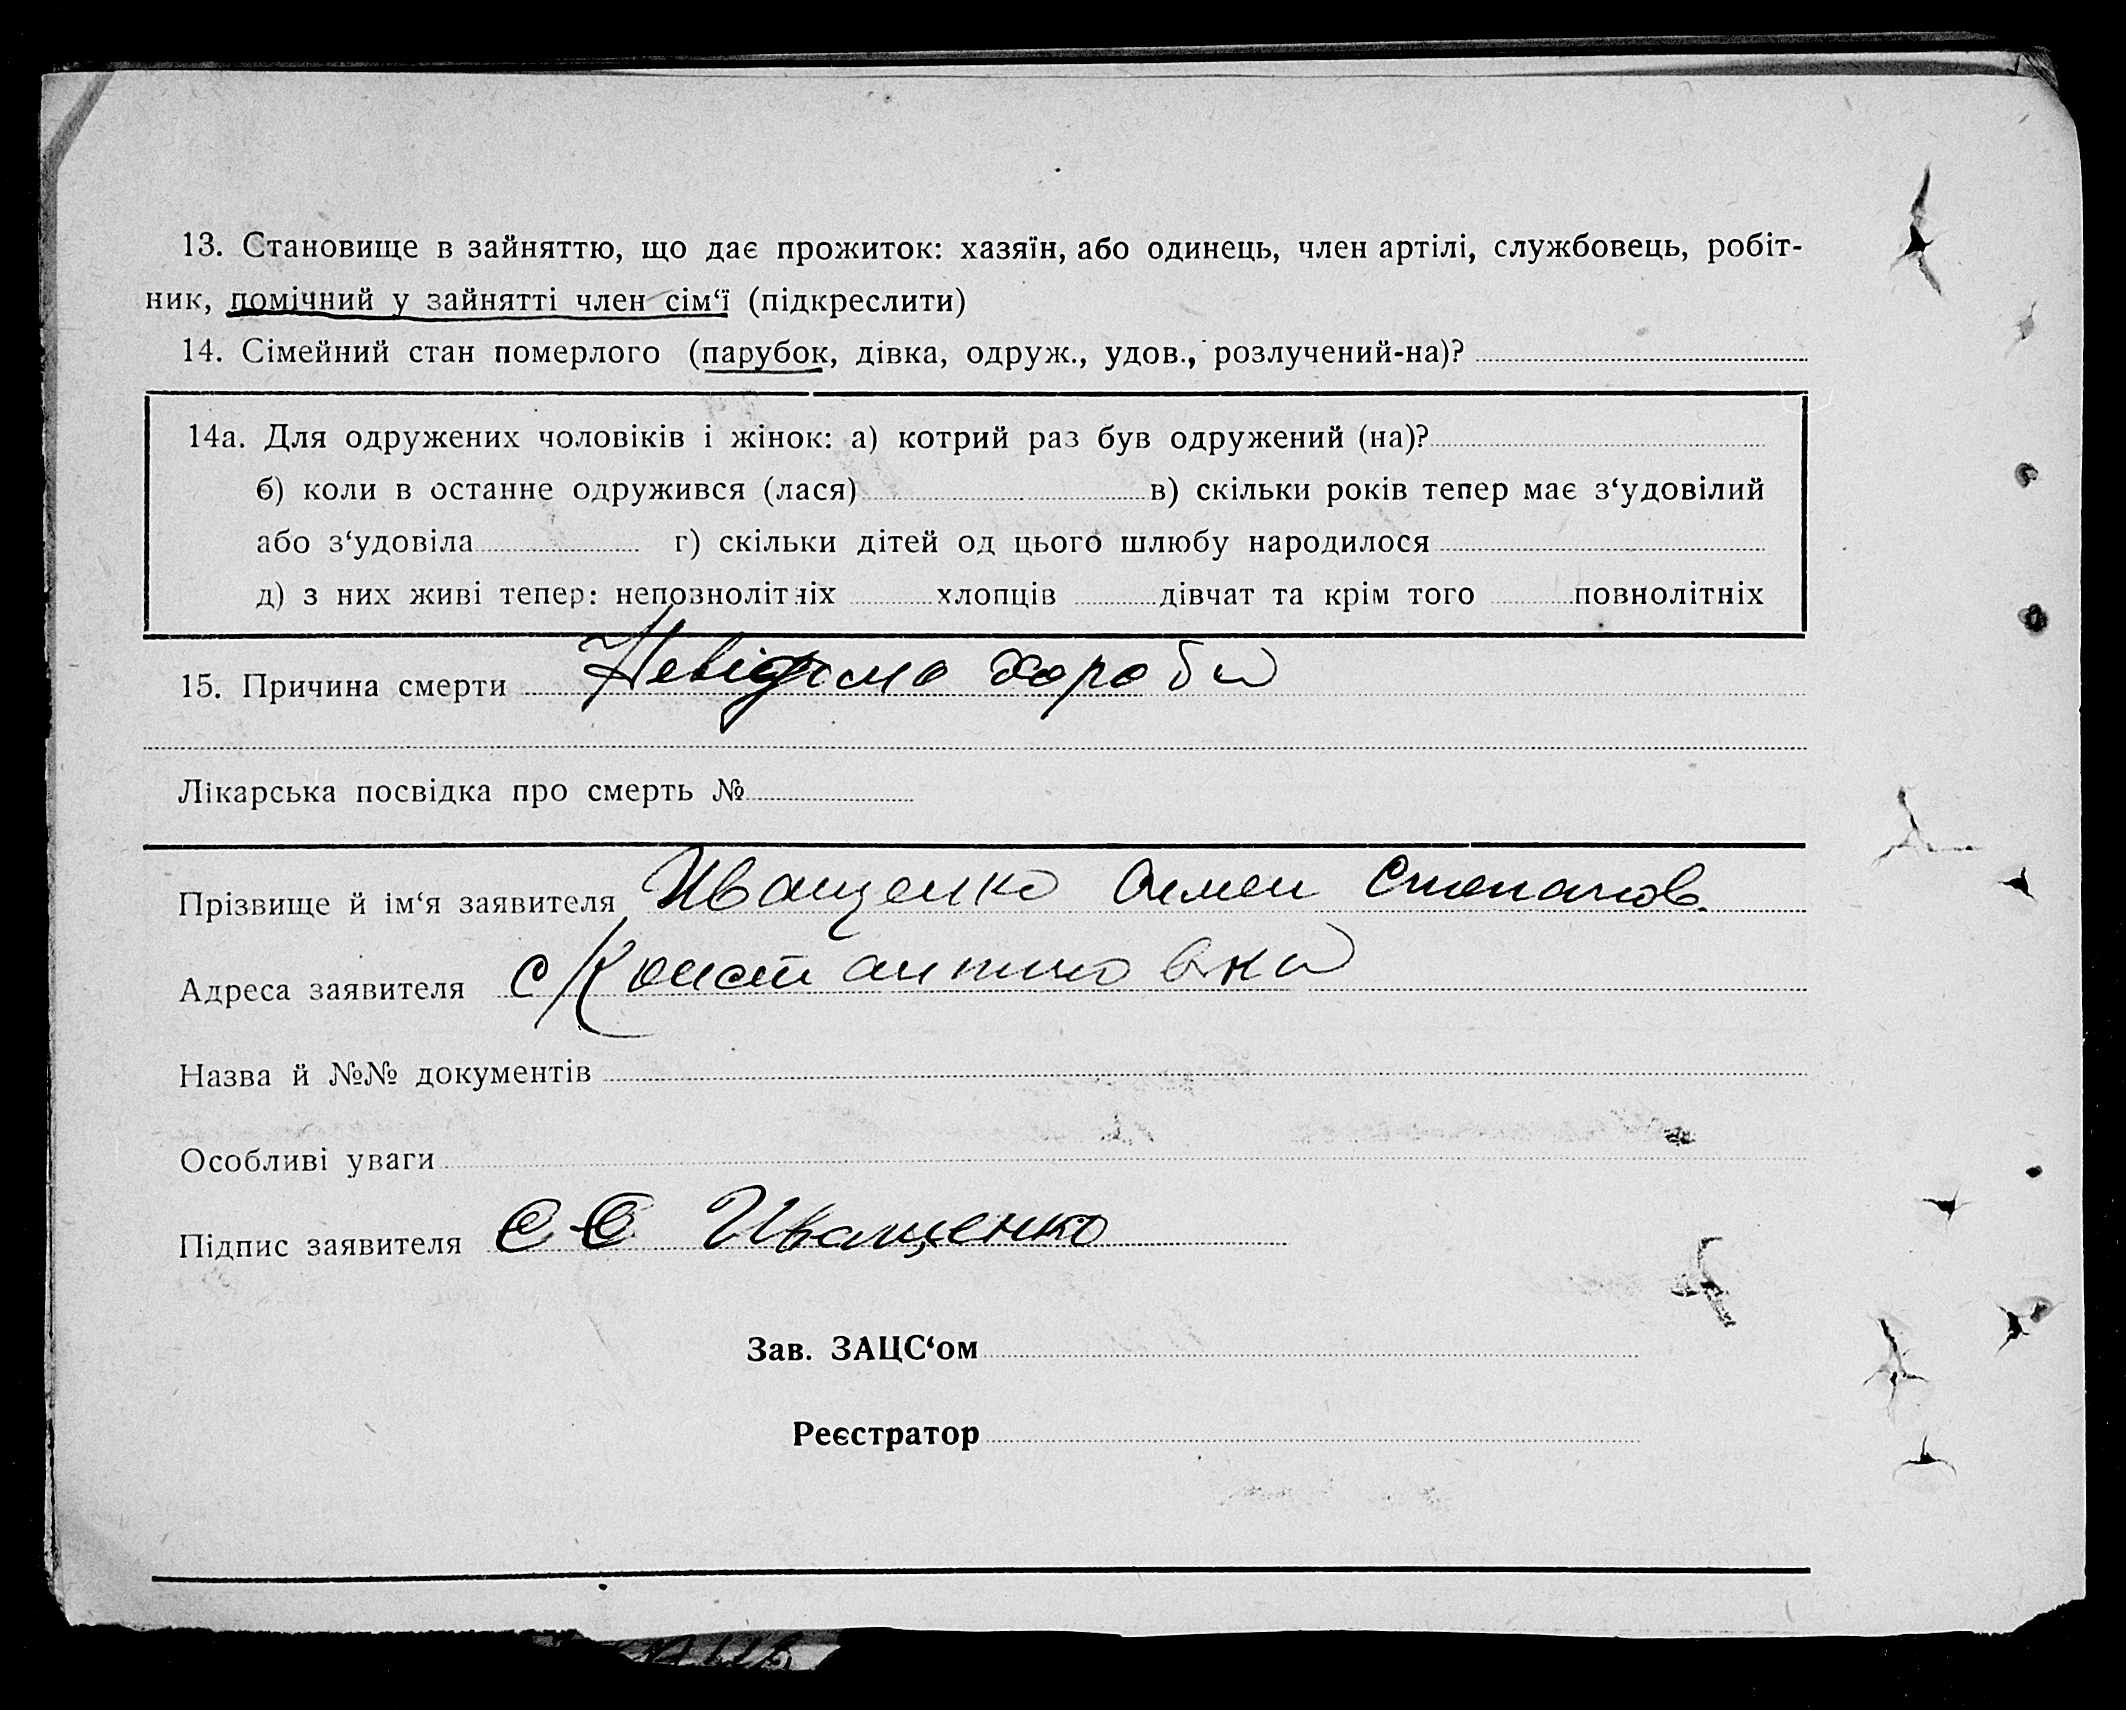 13. Становище в зайняттю, що дає прожиток: хазяїн, або одинець, член артілі, службовець, робіт-
ник, помічний у зайнятті член сім‘ї (підкреслити)
14. Сімейний стан померлого (парубок, дівка, одруж., удов., розлучений-на)?
14а. Для одружених чоловіків і жінок: а) котрий раз був одружений (на)?
б) коли в останне одружився (лася) в) скільки років тепер має з‘удовілий
або з‘удовіла г) скільки дітей од цього шлюбу народилося
д) з них живі тепер: неповнолітніх хлопців дівчат та крім того повнолітніх
15. Причина смерти Невідома хороби
Лікарська посвідка про смерть №
Прізвище й ім‘я заявителя Иващенко Семен Степанов.
Адреса заявителя с Константиновка
Назва й №№ документів
Особливі уваги
Підпис заявителя С С Иващенко
Зав. ЗАЦС‘ом
Реєстратор